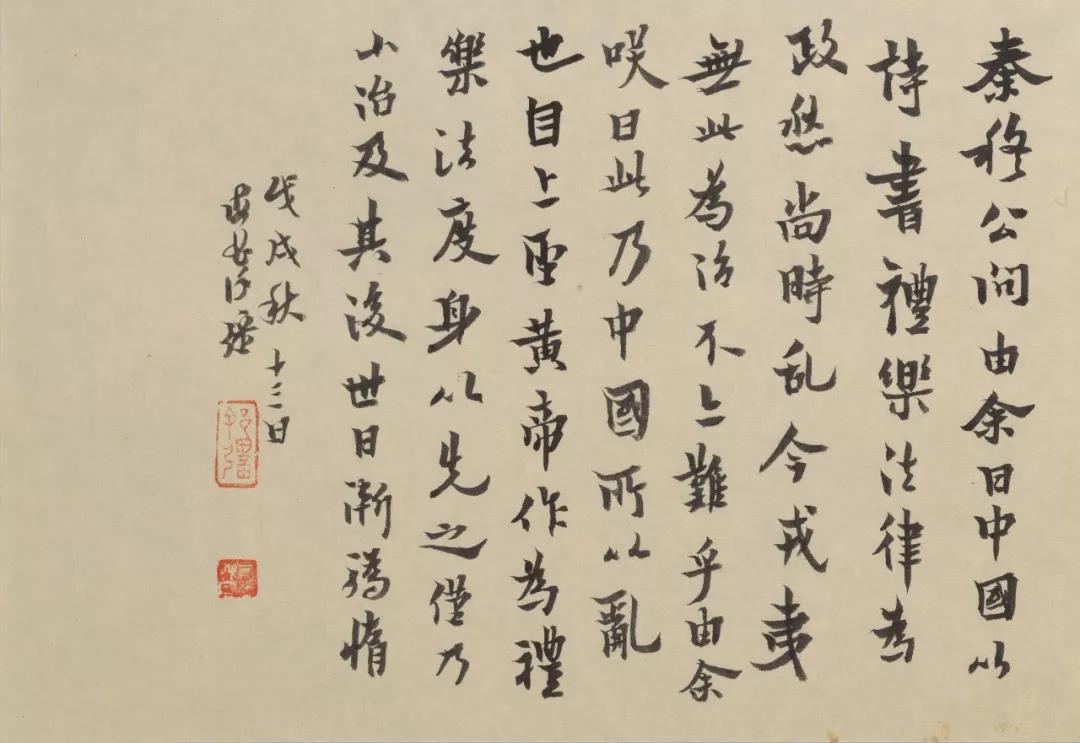 秦穆公問由余曰中國以
詩書禮樂法律為
政然尚時乱今戎夷
無此為治不亦難乎由余
咲曰此乃中國所以亂
也自上聖黄帝作為禮
樂法度身以先之僅乃
小治及其後世日漸驕惰
戊戌秋十二日